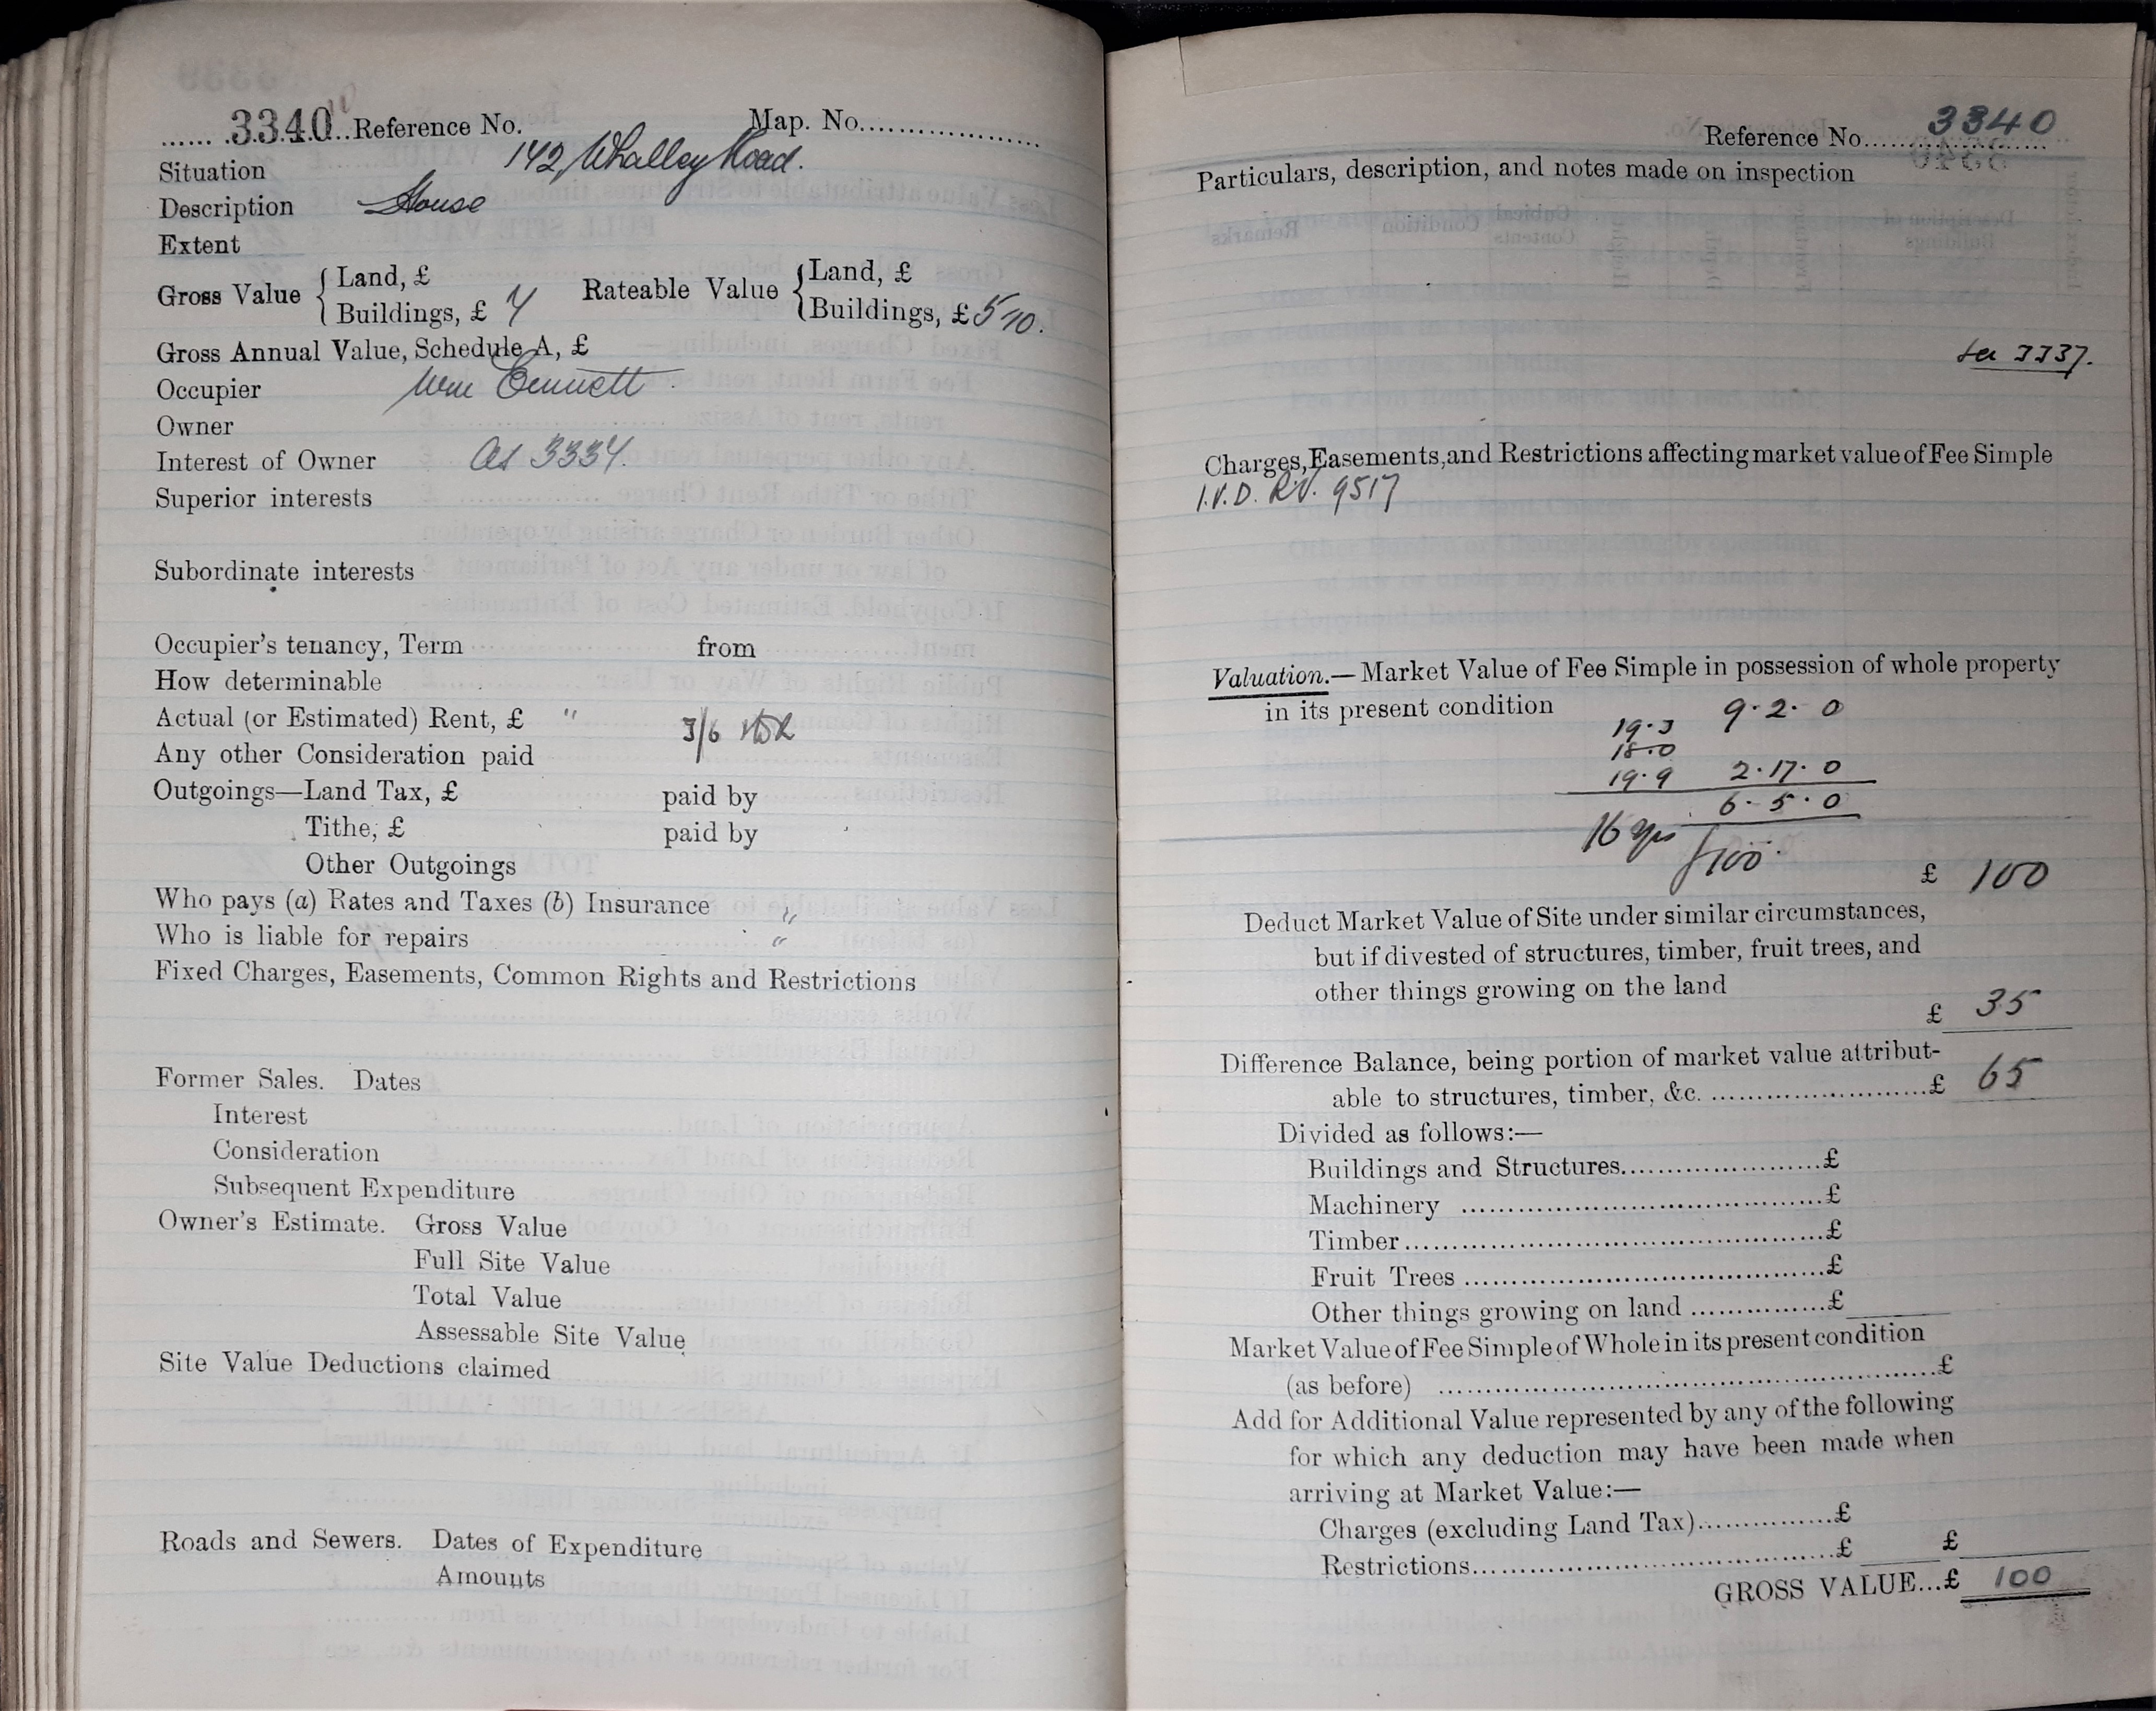 3340 Reference No. Map. No.
Situation 142, Whalley Road.
Description House
Extent
Gross Value { Land, £ Rateable Value { Land, £
Buildings, £ 7 Buildings, £ 5 10.
Gross Annual Value, Schedule A, £
Occupier Wm Emmett
Owner
Interest of Owner As 3337.
Superior interests
Subordinate interests
Occupier's tenancy, Term from
How determinable
Actual (or Estimated) Rent, £ " 3/6
Any other Consideration paid
Outgoings—Land Tax, £ paid by
Tithe, £ paid by
Other Outgoings
Who pays (a) Rates and Taxes (b) Insurance "
Who is liable for repairs "
Fixed Charges, Easements, Common Rights and Restrictions
Former Sales. Dates
Interest
Consideration
Subsequent Expenditure
Owner's Estimate. Gross Value
Full Site Value
Total Value
Assessable Site Value
Site Value Deductions claimed
Roads and Sewers. Dates of Expenditure
Amounts
Reference No. 3340
Particulars, description, and notes made on inspection
See 3337.
Charges, Easements, and Restrictions affecting market value of Fee Simple
I.V.D. R.V. 9517
Valuation.—Market Value of Fee Simple in possession of whole property
in its present condition 9. 2. 0
19.3
18.0
19.9 2. 17. 0
6. 5. 0
16 yrs £100.
£ 100
Deduct Market Value of Site under similar circumstances,
but if divested of structures, timber, fruit trees, and
other things growing on the land
£ 35
Difference Balance, being portion of market value attribut-
able to structures, timber, &c. £ 65
Divided as follows:—
Buildings and Structures £
Machinery £
Timber £
Fruit Trees £
Other things growing on land £
Market Value of Fee Simple of Whole in its present condition
(as before) £
Add for Additional Value represented by any of the following
for which any deduction may have been made when
arriving at Market Value:—
Charges (excluding Land Tax) £
Restrictions £ £
GROSS VALUE...£ 100